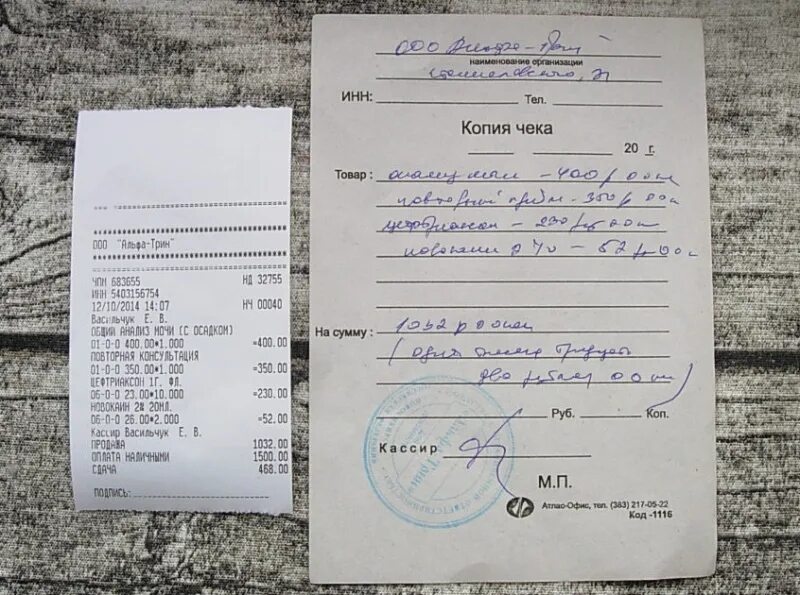 ООО "Альфа-Трин"
ЧПМ 683655 НД 32755
ИНН 5403156754
12/10/2014 14:07 НЧ 00040
Васильчук Е. В.
ОБЩИЙ АНАЛИЗ МОЧИ (С ОСАДКОМ)
01-0-0 400.00*1.000 =400.00
ПОВТОРНАЯ КОНСУЛЬТАЦИЯ
01-0-0 350.00*1.000 =350.00
ЦЕФТРИАКСОН 1Г. ФЛ.
06-0-0 23.00*10.000 =230.00
НОВОКАИН 2% 20МЛ.
06-0-0 26.00*2.000 =52.00
Кассир Васильчук Е. В.
ПРОДАЖА 1032.00
ОПЛАТА НАЛИЧНЫМИ 1500.00
СДАЧА 468.00
ПОДПИСЬ:
ООО Альфа-Трин
наименование организации
ИНН: Тел.
Копия чека
20 г.
Товар : анализ мочи - 400 р 00к
повторный приём - 350 р 00к
цефтриаксон - 230 руб 00к
новокаин - 52 р 00к
На сумму : 1032 р 00коп
(одна тысяча тридцать
два рубля 00к)
Руб. Коп.
Кассир
М.П.
Атлас-Офис, тел. (383) 217-05-22
Код -1116